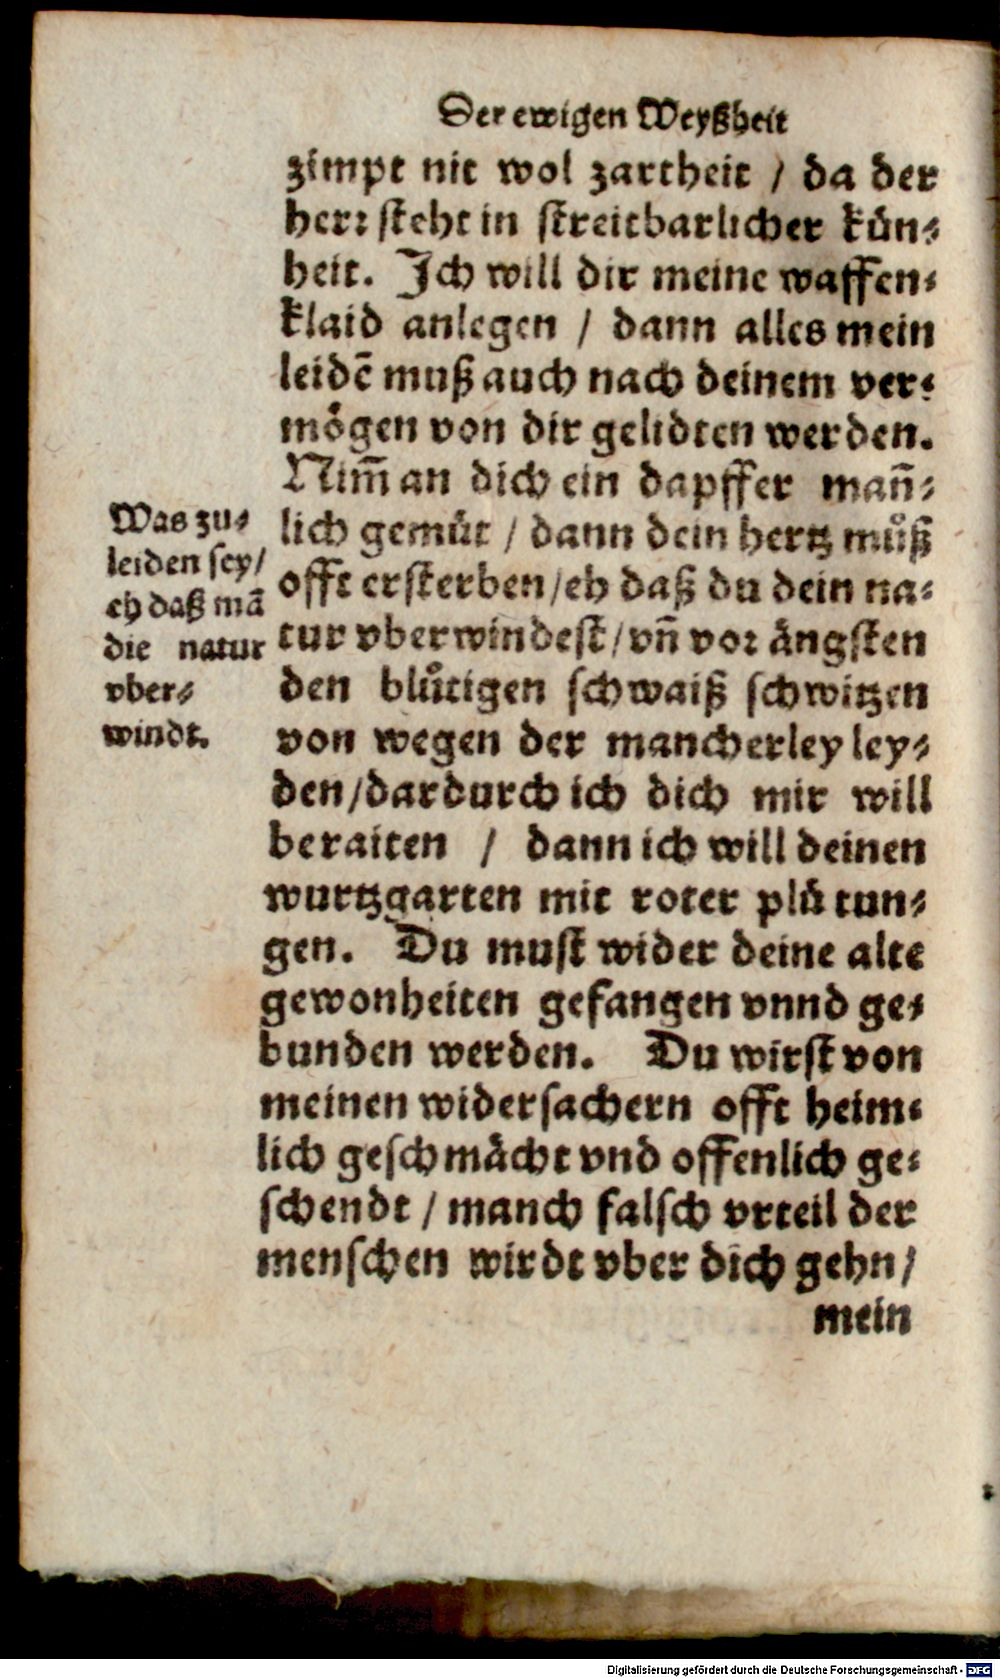 Der ewigen Weyßheit
zimpt nit wol zartheit / da der
herꝛ steht in streitbarlicher kün⸗
heit. Ich will dir meine waffen⸗
klaid anlegen / dann alles mein
leidẽ muß auch nach deinem ver⸗
moͤgen von dir gelidten werden.
Nim̃ an dich ein dapffer man̄⸗
lich gemuͤt / dann dein hertz muͦß
offt ersterben / eh daß du dein na⸗
tur vberwindest / vñ voꝛ aͤngsten
den bluͦtigen schwaiß schwitzen
von wegen der mancherley ley⸗
den / dardurch ich dich mir will
beraiten / dann ich will deinen
wurtzgarten mit roter pluͤ tun⸗
gen. Du must wider deine alte
gewonheiten gefangen vnnd ge⸗
bunden werden. Du wirst von
meinen widersachern offt heim⸗
lich geschmaͤcht vnd offenlich ge⸗
schendt / manch falsch vrteil der
menschen wirdt vber dich gehn /
mein
Was zu⸗
leiden sey /
eh daß mã
die natur
vber⸗
windt.
Digitalisierung gefördert durch die Deutsche Forschungsgemeinschaft - DFG